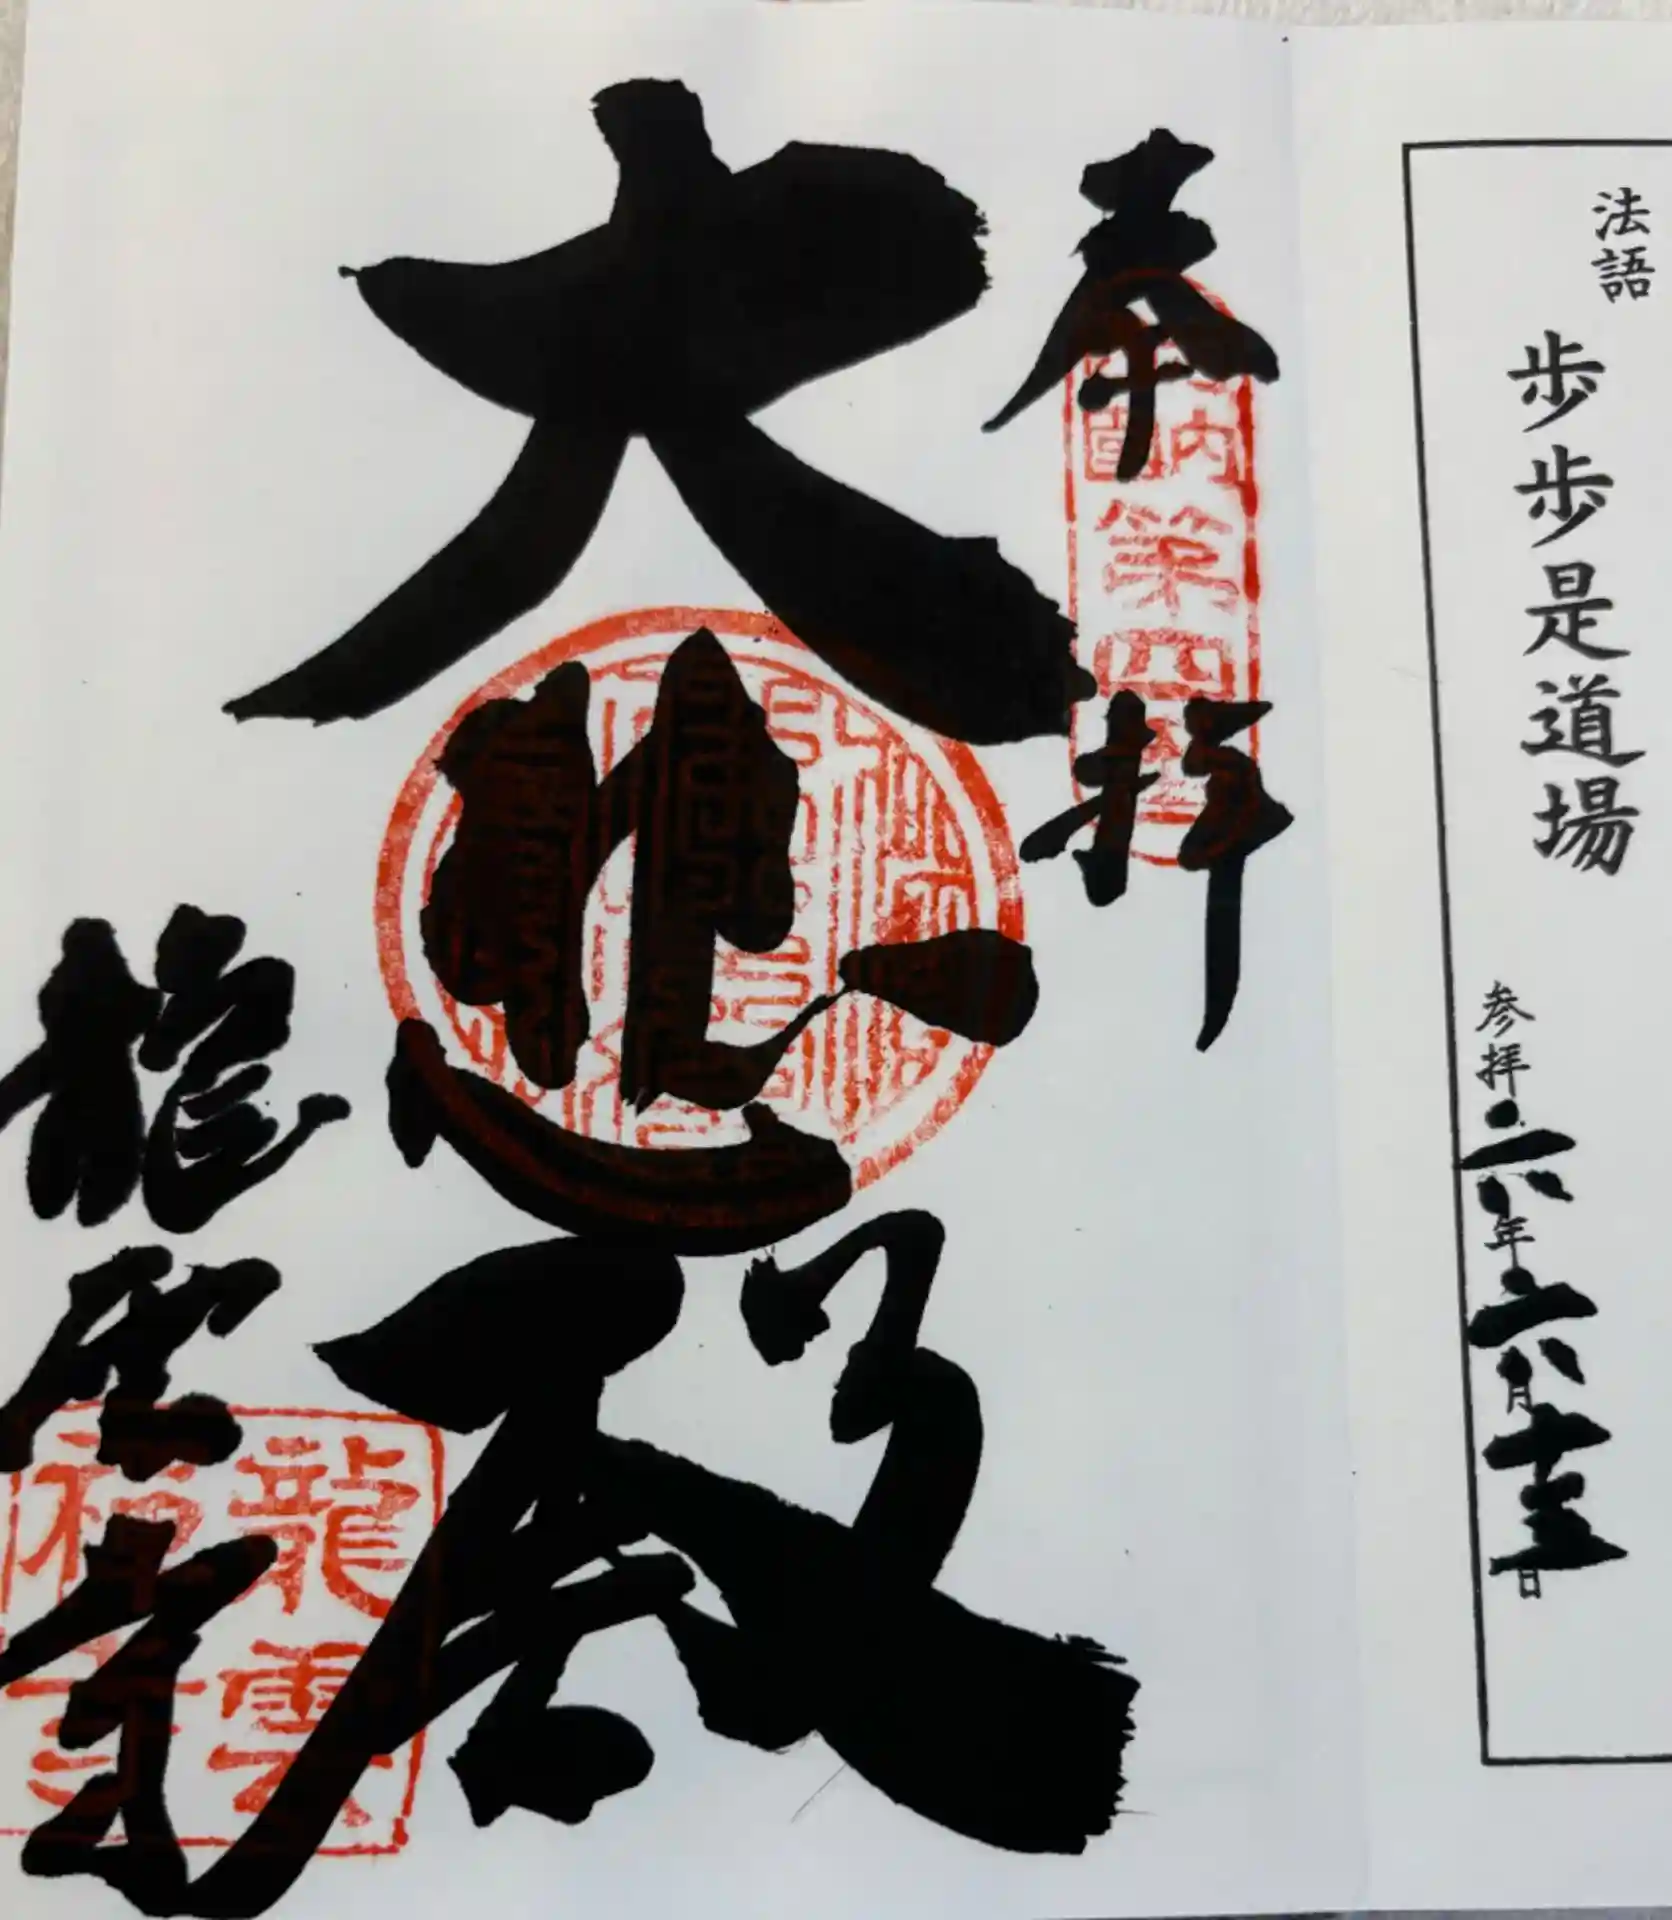 法語
歩歩是道場
参拝六年六月十三日
奉拝
第四番
大悲殿
龍雲寺
龍雲
禅寺